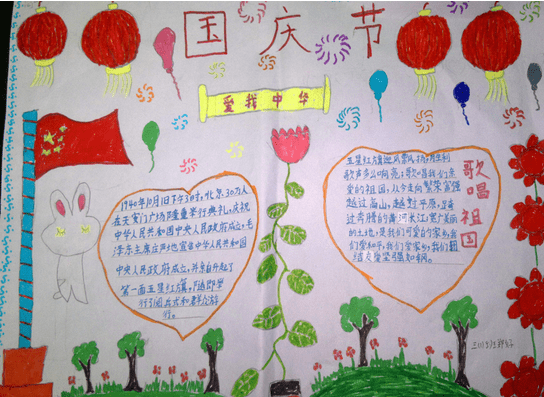 国庆节
爱我中华
1940年10月1日下午3时,北京30万人
在天安门广场隆重举行典礼,庆祝
中华人民共和国中央人民政府成立,毛
泽东主席庄严地宣告中华人民共和国
中央人民政府成立,并亲自升起了
第一面五星红旗,随即举
行了阅兵式和群众游
行。
歌唱祖国
五星红旗迎风飘扬,胜利
歌声多么响亮;歌唱我们亲
爱的祖国,从今走向繁荣富强
越过高山,越过平原,
过奔腾的黄河长江宽广美丽
的土地,是我们可爱的家乡我
们爱和平,我们爱家乡,我们团
结友爱坚强如钢。